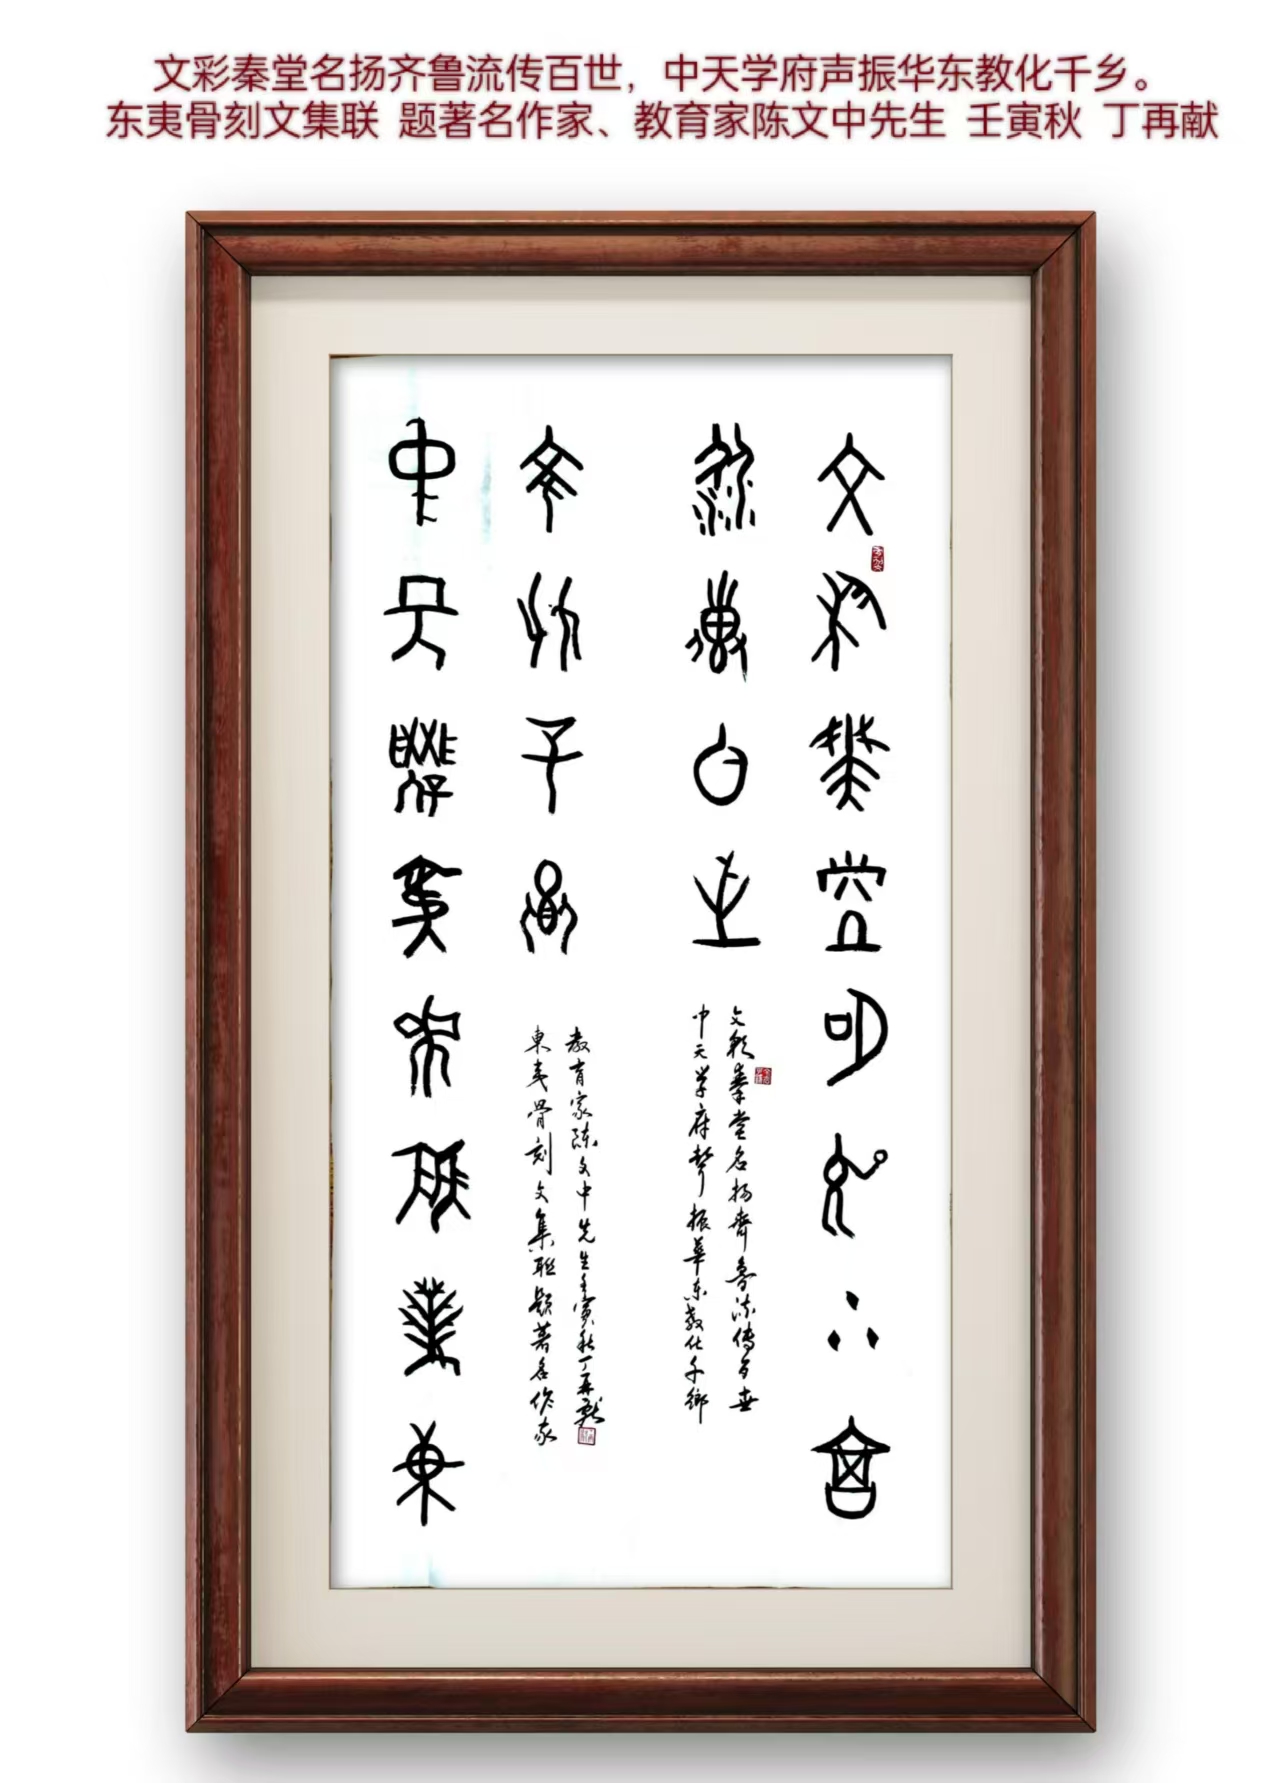 文彩秦堂名扬齐鲁流传百世，中天学府声振华东教化千乡。
东夷骨刻文集联 题著名作家、教育家陈文中先生 壬寅秋 丁再献
文彩秦堂名扬齐鲁
流传百世
文彩秦堂名扬齊魯流傳百世
中天学府聲振華东教化千鄉
教化千鄉
東夷骨刻文集联題著名作家
教育家陈文中先生壬寅秋丁再献
中天學府聲振華東